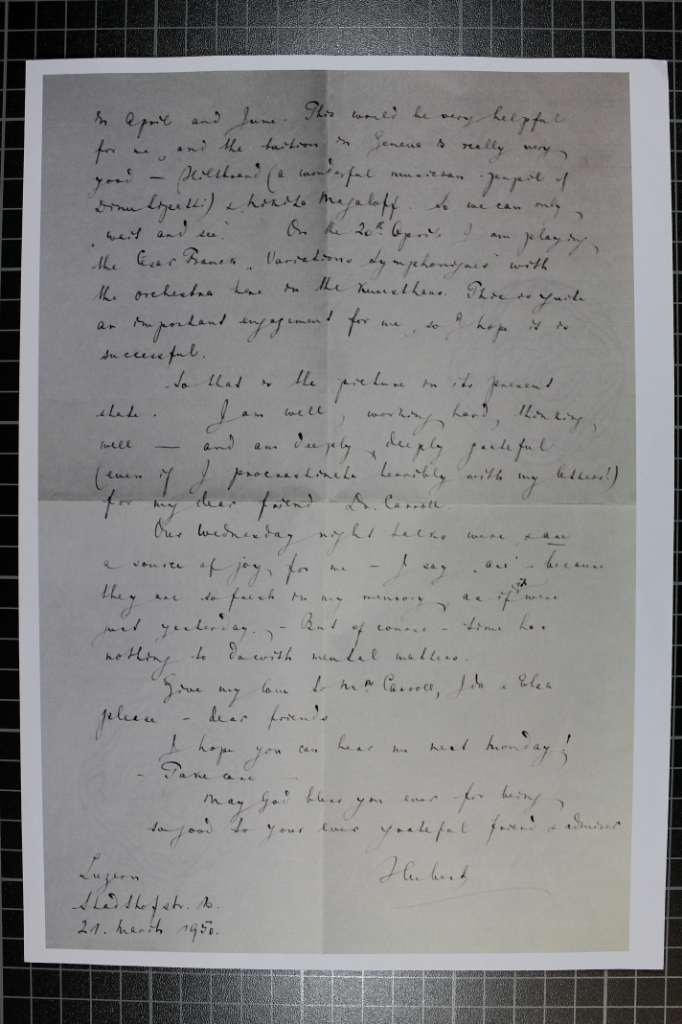 in April and June. This would be very helpful
for me, and the tuition in Geneva is really very
good — Hiltbrand (a wonderful musician - pupil of
Dinu Lipatti) & Nikita Magaloff. So we can only
"wait and see". On the 20th April I am playing
the César Franck "Variations Symphoniques" with
the orchestra here in the Kunsthaus. This is quite
an important engagement for me, so I hope it is
successful.
So that is the picture in its present
state. I am well, working hard, thinking
well — and am deeply, deeply grateful
(even if I procrastinate terribly with my letters!)
for my dear friend Dr. Carroll.
Our Wednesday night talks were & are
a source of joy for me - I say "are" - because
they are so fresh in my memory, as if it were
just yesterday. - But of course - time has
nothing to do with mental matters.
Give my love to Mrs Carroll, Ida & Elsa
please - dear friends
I hope you can hear me next Monday!
- Take care -
May God bless you ever for being
so good to your ever grateful friend & admirer
Hubert
Luzern
Stadthofstr.
21. March 1950.